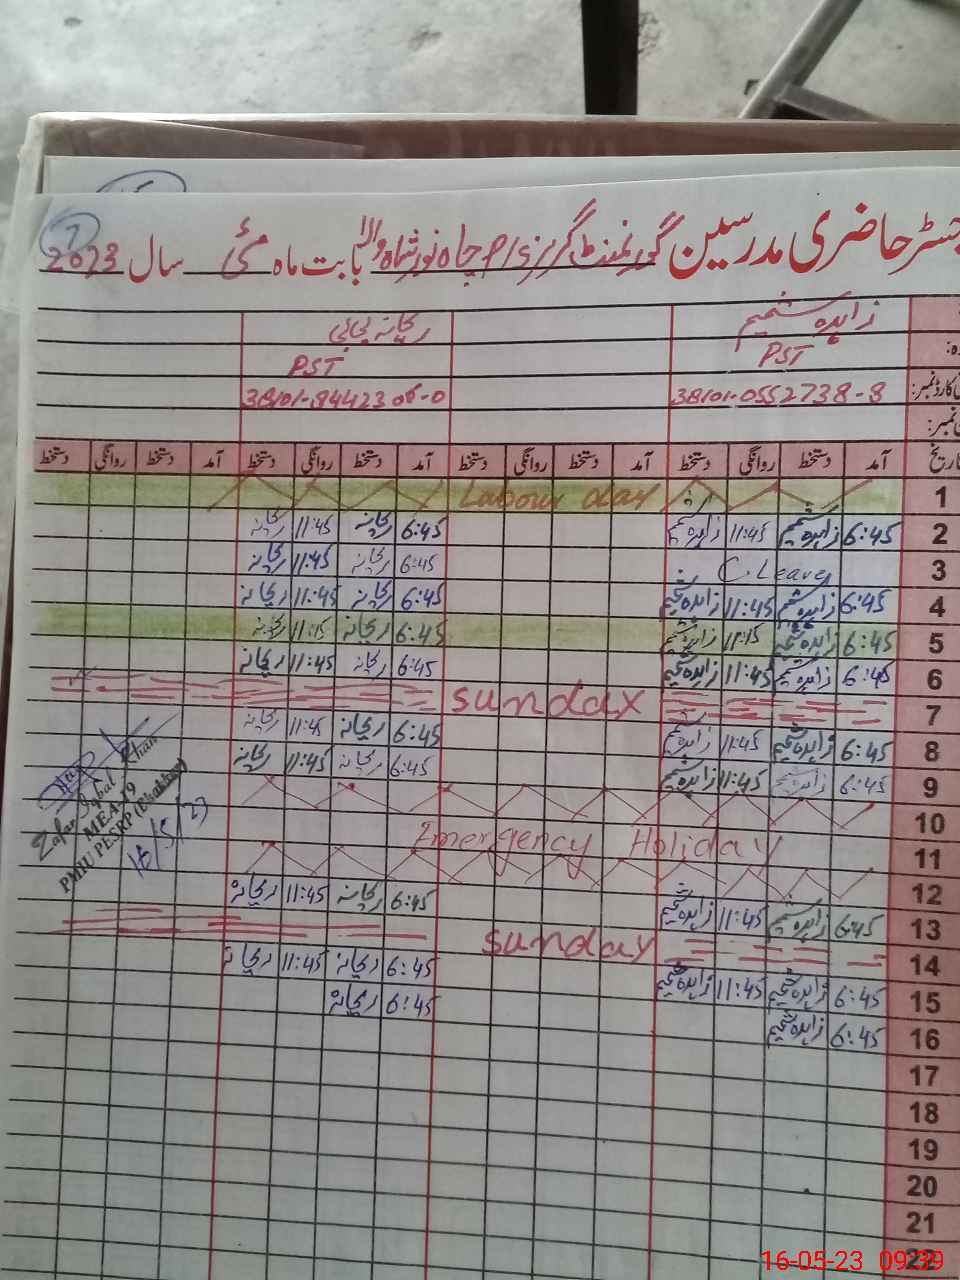 7
رجسٹر حاضری مدرسین گورنمنٹ گرلز P/S چاہ نور شاہ والا بابت ماہ مئی سال 2023
زاہدہ شمیم ریحانہ بی بی
PST PST
شناختی کارڈ نمبر: 38101-0552738-8
تاریخ آمد دستخط روانگی دستخط آمد دستخط روانگی دستخط آمد دستخط روانگی دستخط آمد دستخط روانگی دستخط
1 Labour day
2 6:45 زاہدہ شمیم 11:45 زاہدہ شمیم 6:45 ریحانہ 11:45 ریحانہ
3 C.Leave 6:45 ریحانہ 11:45 ریحانہ
4 6:45 زاہدہ شمیم 11:45 زاہدہ شمیم 6:45 ریحانہ 11:45 ریحانہ
5 6:45 زاہدہ شمیم 11:15 زاہدہ شمیم 6:45 ریحانہ 11:15 ریحانہ
6 6:45 زاہدہ شمیم 11:45 زاہدہ شمیم 6:45 ریحانہ 11:45 ریحانہ
7 sunday
8 6:45 زاہدہ شمیم 11:45 زاہدہ شمیم 6:45 ریحانہ 11:45 ریحانہ
9 6:45 زاہدہ شمیم 11:45 زاہدہ شمیم 6:45 ریحانہ 11:45 ریحانہ
10
11 Emergency Holiday
12
13 6:45 زاہدہ شمیم 11:45 زاہدہ شمیم 6:45 ریحانہ 11:45 ریحانہ
14 sunday
15 6:45 زاہدہ شمیم 11:45 زاہدہ شمیم 6:45 ریحانہ 11:45 ریحانہ
16 6:45 زاہدہ شمیم 6:45 ریحانہ
17
18
19
20
21
22
Zafar Iqbal Khan
MEA-19
PMIU PESRP (Bhakkar)
16/5/23
16-05-23 09:39